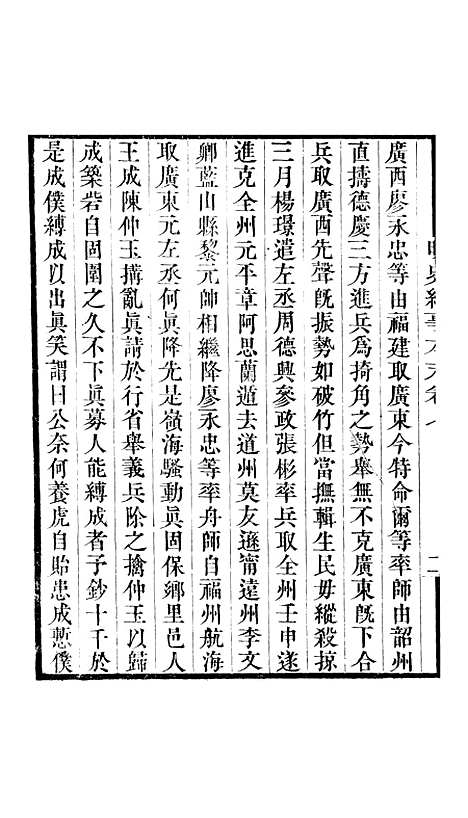 明史紀事本末卷八
二
廣西廖永忠等由福建取廣東今特命爾等率師由韶州
直擣德慶三方進兵爲掎角之勢舉無不克廣東旣下合
兵取廣西先聲旣振勢如破竹但當撫輯生民毋縱殺掠
三月楊璟遣左丞周德興參政張彬率兵取全州壬申遂
進克全州元平章阿思蘭遁去道州莫友遜甯遠州李文
卿藍山縣黎元帥相繼降廖永忠等率舟師自福州航海
取廣東元左丞何眞降先是嶺海騷動眞固保鄉里邑人
王成陳仲玉搆亂眞請於行省舉義兵除之擒仲玉以歸
成築砦自固圍之久不下眞募人能縛成者予鈔十千於
是成僕縛成以出眞笑謂曰公奈何養虎自貽患成慙僕